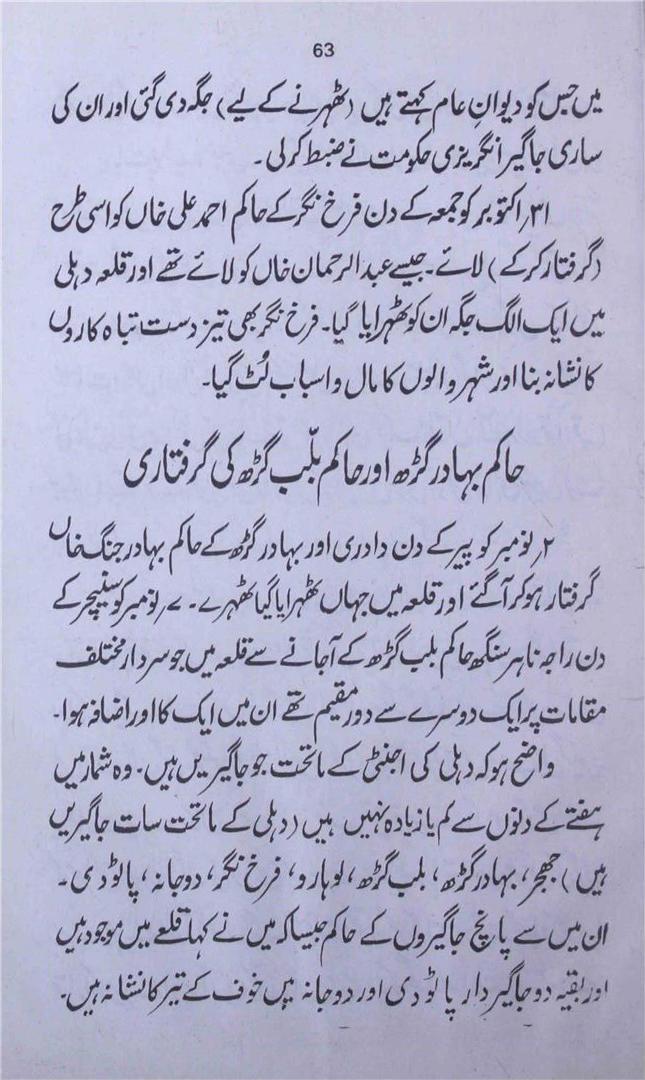 63
میں جس کو دیوانِ عام کہتے ہیں (ٹھہرنے کے لیے) جگہ دی گئی اور ان کی
ساری جاگیر انگریزی حکومت نے ضبط کر لی۔
۳۱؍ اکتوبر کو جمعہ کے دن فرخ نگر کے حاکم احمد علی خاں کو اسی طرح
(گرفتار کر کے) لائے۔ جیسے عبدالرحمان خاں کو لائے تھے اور قلعہ دہلی
میں ایک الگ جگہ ان کو ٹھہرایا گیا۔ فرخ نگر بھی تیز دست تباہ کاروں
کا نشانہ بنا اور شہر والوں کا مال و اسباب لُٹ گیا۔
حاکم بہادر گڑھ اور حاکم بلّب گڑھ کی گرفتاری
۲؍ نومبر کو پیر کے دن دادری اور بہادر گڑھ کے حاکم بہادر جنگ خاں
گرفتار ہو کر آ گئے اور قلعہ میں جہاں ٹھہرایا گیا ٹھہرے۔ ۷؍ نومبر کو سنیچر کے
دن راجہ ناہر سنگھ حاکم بلب گڑھ کے آ جانے سے قلعہ میں جو سردار مختلف
مقامات پر ایک دوسرے سے دور مقیم تھے ان میں ایک کا اور اضافہ ہوا۔
واضح ہو کہ دہلی کی اجنٹی کے ماتحت جو جاگیریں ہیں۔ وہ شمار میں
ہفتے کے دنوں سے کم یا زیادہ نہیں ہیں (دہلی کے ماتحت سات جاگیریں
ہیں) جھجر، بہادر گڑھ، بلب گڑھ، لوہارو، فرخ نگر، دوجانہ، پاٹودی۔
ان میں سے پانچ جاگیروں کے حاکم جیسا کہ میں نے کہا قلعے میں موجود ہیں
اور بقیہ دو جاگیردار پاٹودی اور دوجانہ میں خوف کے تیر کا نشانہ ہیں۔